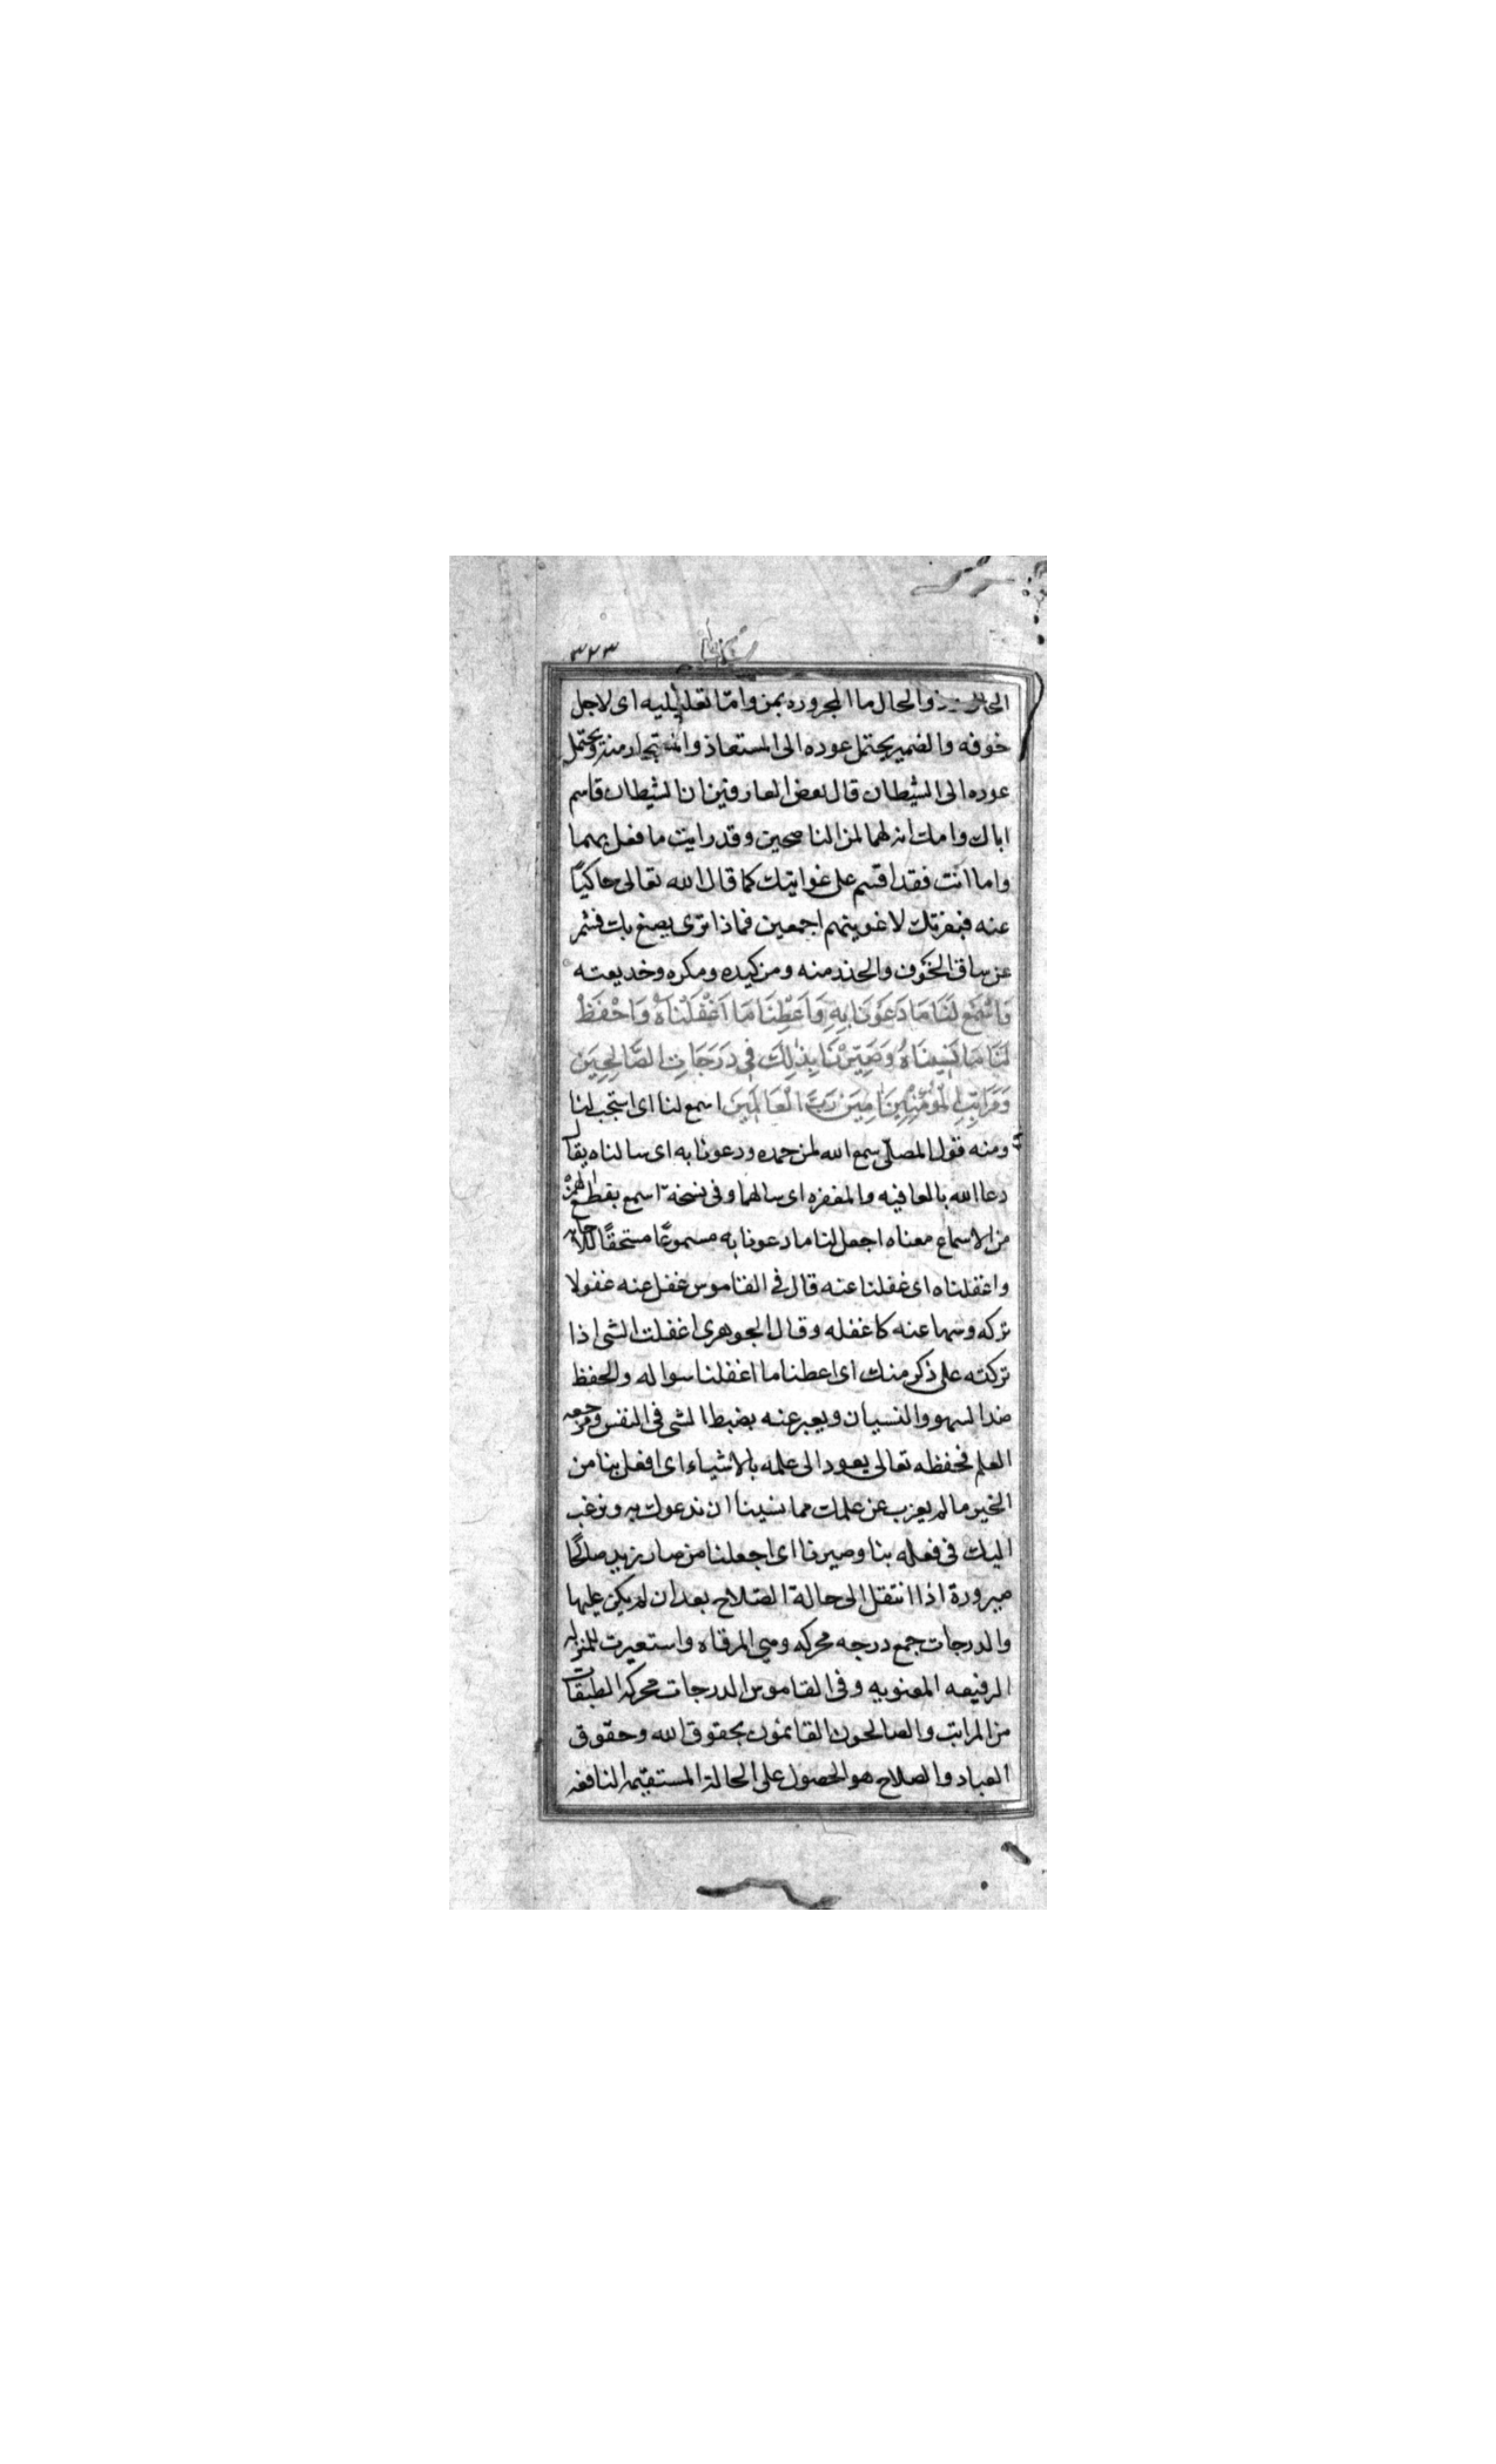 ٣٢٣
والحال ما المجروره بمن واما تعليليه اى لاجل
خوفه والضمير يحتمل عوده الى المستعاذ والمستجار منه ويحتمل
عوده الى الشيطان قال بعض العارفين ان الشيطان قاسم
اباك وامك انه لهما لمن الناصحين وقد رايت ما فعل بهما
واما انت فقد اقسم على غوايتك كما قال الله تعالى حاكيًا
عنه فبعزتك لاغوينهم اجمعين فماذا ترى يصنع بك فشمر
عن ساق الخوف والحذر منه ومن كيده ومكره وخديعته
وَاسْمَع لَنَا مَا دَعَوْنَا بِهِ وَاَعْطِنَا مَا اَغْفَلْنَاهُ وَاحْفَظْ
لَنَا مَا نَسِينَاهُ وَصَيِّرْنَا بِذٰلِكَ فِى دَرَجَاتِ الصَّالِحِينَ
وَمَرَاتِبِ الْمُؤْمِنِينَ اٰمِينَ رَبَّ الْعَالَمِينَ اسمع لنا اى استجب لنا
ومنه قول المصلّى سمع الله لمن حمده ودعونا به اى سالناه يقال
دعا الله بالعافيه والمغفره اى سالهما وفى نسخة اسمع بقطع الهمزه
من الاسماع معناه اجعل لنا ما دعونا به مسموعًا مستحقًا للاجابه
واغفلناه اى غفلنا عنه قال فى القاموس غفل عنه غفولا
تركه وسها عنه كاغفله وقال الجوهرى اغفلت الشى اذا
تركته على ذكر منك اى اعطنا ما اغفلنا سواله والحفظ
ضد السهو والنسيان ويعبر عنه بضبط الشى فى النفس ومرجعه
العلم فحفظه تعالى يعود الى علمه بالاشياء اى افعل بنا من
الخير ما لم يعزب عن علمك مما نسينا ان ندعوك به ونرغب
اليك فى فعله بنا وصيرنا اى اجعلنا من صار زيد صالحًا
صيرورة اذا انتقل الى حالة الصّلاح بعد ان لم يكن عليها
والدرجات جمع درجه محركه وهى المرقاه واستعيرت للمنزله
الرفيعه المعنويه وفى القاموس الدرجات محركه الطبقات
من المراتب والصالحون القائمون بحقوق الله وحقوق
العباد والصلاح هو الحصول على الحالة المستقيمه النافعه